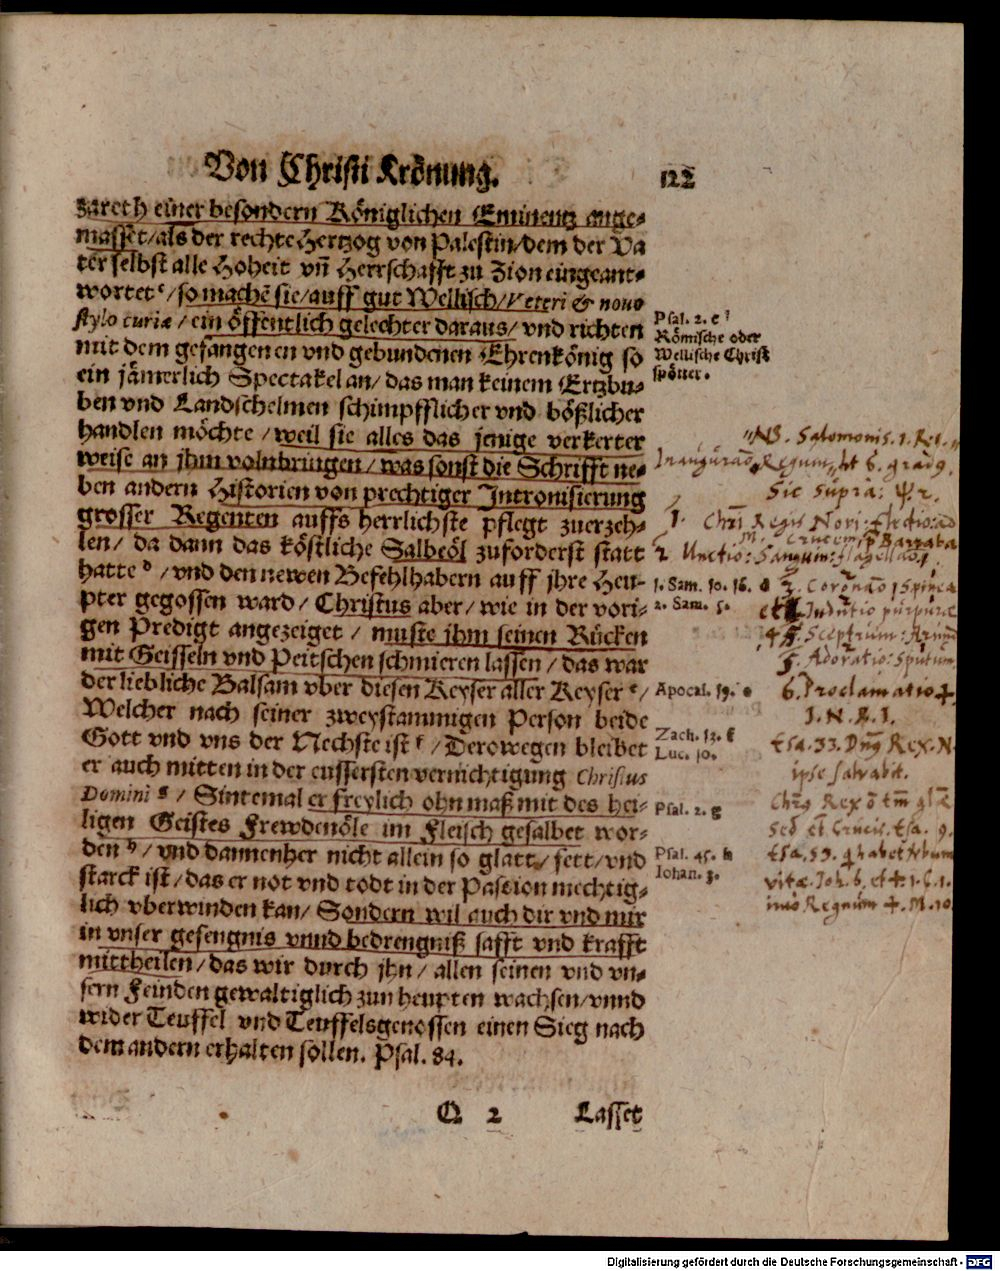 Von Christi Krönung.
122
zareth einer besondern Königlichen Eminentz ange-
masset/als der rechte Hertzog von Palestin/dem der Va
ter selbst alle Hoheit vñ Herrschafft zu Zion eingeant-
wortet c/so machẽ sie/auff gut Wellisch/Veteri & nouo
stylo curiæ/ein öffentlich gelechter daraus/vnd richten
mit dem gefangenen vnd gebundenen Ehrenkönig so
ein jämerlich Spectakel an/das man keinem Ertzbu-
ben vnd Landschelmen schimpfflicher vnd bößlicher
handlen möchte/weil sie alles das jenige verkerter
weise an jhm volnbringen/was sonst die Schrifft ne-
ben andern Historien von prechtiger Intronisierung
grosser Regenten auffs herrlichste pflegt zuerzeh-
len/da dann das köstliche Salböl zuforderst statt
hatte d/vnd den newen Befehlhabern auff jhre Heu-
pter gegossen ward/Christus aber/wie in der vori-
gen Predigt angezeiget/muste jhm seinen Rücken
mit Geisseln vnd Peitschen schmieren lassen/das war
der liebliche Balsam vber diesen Keyser aller Keyser e/
Welcher nach seiner zweystammigen Person beide
Gott vnd vns der Nechste ist f/Derowegen bleibet
er auch mitten in der eussersten vernichtigung Christus
Domini g/Sintemal er freylich ohn maß mit des hei-
ligen Geistes Frewdenöle im Fleisch gesalbet wor-
den h/vnd dannenher nicht allein so glatt/fett/vnd
starck ist/das er not vnd todt in der Passion mechtig-
lich vberwinden kan/Sondern wil auch dir vnd mir
in vnser gefengnis vnnd bedrengniß safft vnd krafft
mittheilen/das wir durch jhn/allen seinen vnd vn-
sern Feinden gewaltiglich zun heupten wachsen/vnnd
wider Teuffel vnd Teuffelsgenossen einen Sieg nach
dem andern erhalten sollen. Psal. 84.
Q 2
Lasset
Psal. 2. c
Römische oder
Wellische Christ
spötter.
1. Sam. 10. 16. d
2. Sam. 5.
Apocal. 19. e
Zach. 13. f
Luc. 10.
Psal. 2. g
Psal. 45. h
Iohan. 3.
NB. Salomonis. 1. R. 1.
Regum
Sic supra: Ψ 2.
1. Regis
2 Unctio: Sanguin:
3. Spinea
Indutio purpuræ
Sceptrum:
5. Adoratio: Sputum
6. Proclamatio
I. N. R. I.
Esa. 33. Rex. N.
ipse salvabit.
Rex
sed et Crucis. Esa. 9.
Esa. 53.
vitæ. Joh. 6.
Regnum
Digitalisierung gefördert durch die Deutsche Forschungsgemeinschaft - DFG